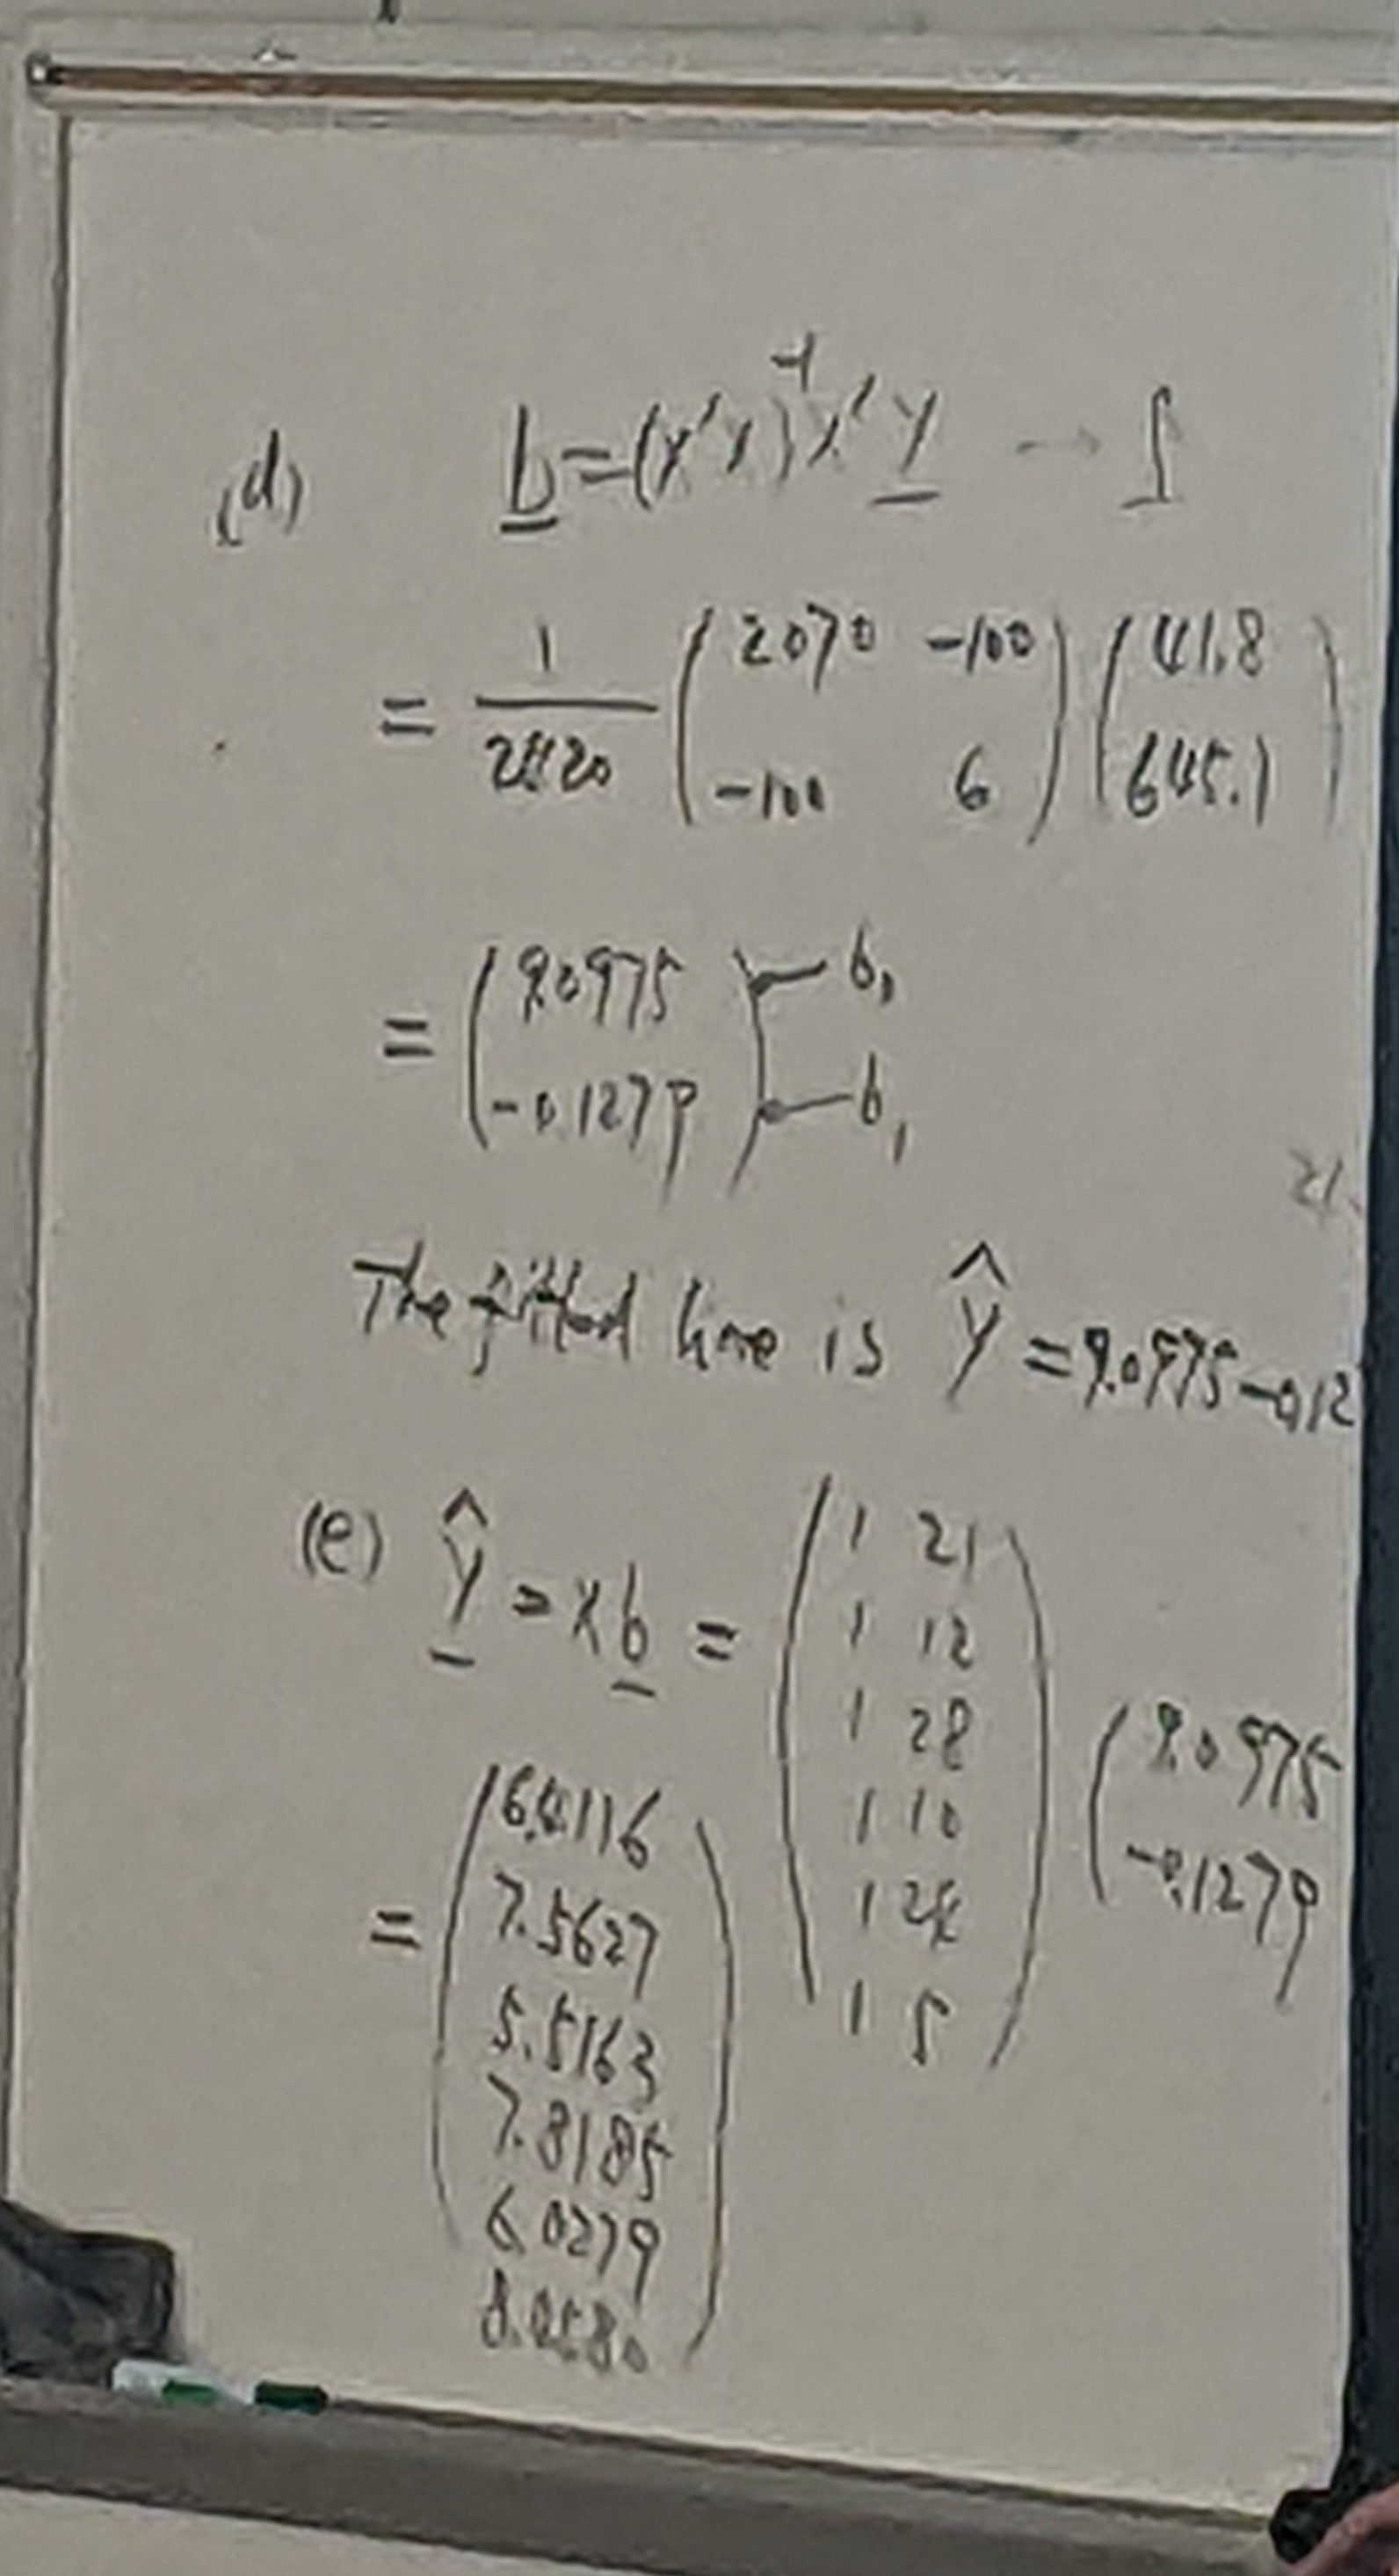 (d) b = (X'X)⁻¹ X' Y →
= 1/2420 ( 2070 -100 ) ( 41.8 )
( -100 6 ) ( 645.1 )
= ( 9.0975 ) — b₀
( -0.1279 ) — b₁
21.
The fitted line is Ŷ = 9.0975 - 0.12
(e) Ŷ = X b = ( 1 21
1 12
1 28
1 10
1 24
1 5 ) ( 9.0975
-0.1279
= ( 6.4116
7.5627
5.5163
7.8185
6.0279
8.4580 )